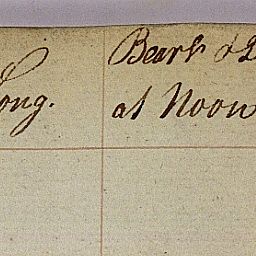 Long.
Bear.g & D
at Noon